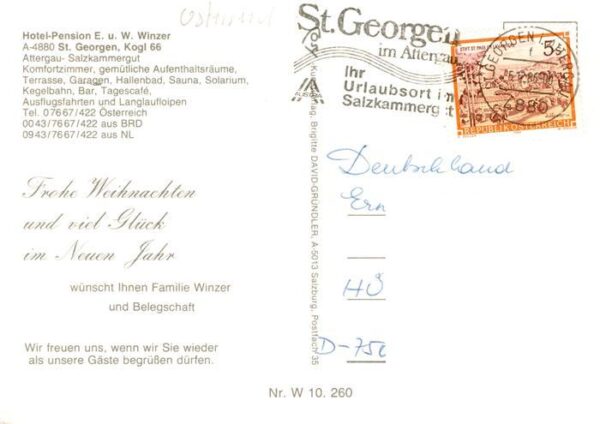 Hotel-Pension E. u. W. Winzer
A-4880 St. Georgen, Kogl 66
Attergau- Salzkammergut
Komfortzimmer, gemütliche Aufenthaltsräume,
Terrasse, Garagen, Hallenbad, Sauna, Solarium,
Kegelbahn, Bar, Tagescafé,
Ausflugsfahrten und Langlaufloipen
Tel. 07667/422 Österreich
0043/7667/422 aus BRD
0943/7667/422 aus NL
Frohe Weihnachten
und viel Glück
im Neuen Jahr
wünscht Ihnen Familie Winzer
und Belegschaft
Wir freuen uns, wenn wir Sie wieder
als unsere Gäste begrüßen dürfen.
Nr. W 10. 260
Brigitte DAVID-GRÜNDLER, A-5013 Salzburg, Postfach 35
St. Georgen
im Attergau
Ihr
Urlaubsort im
Salzkammergut
5
4880
REPUBLIK ÖSTERREICH
Deutschland
Ern
HÖ
D-75